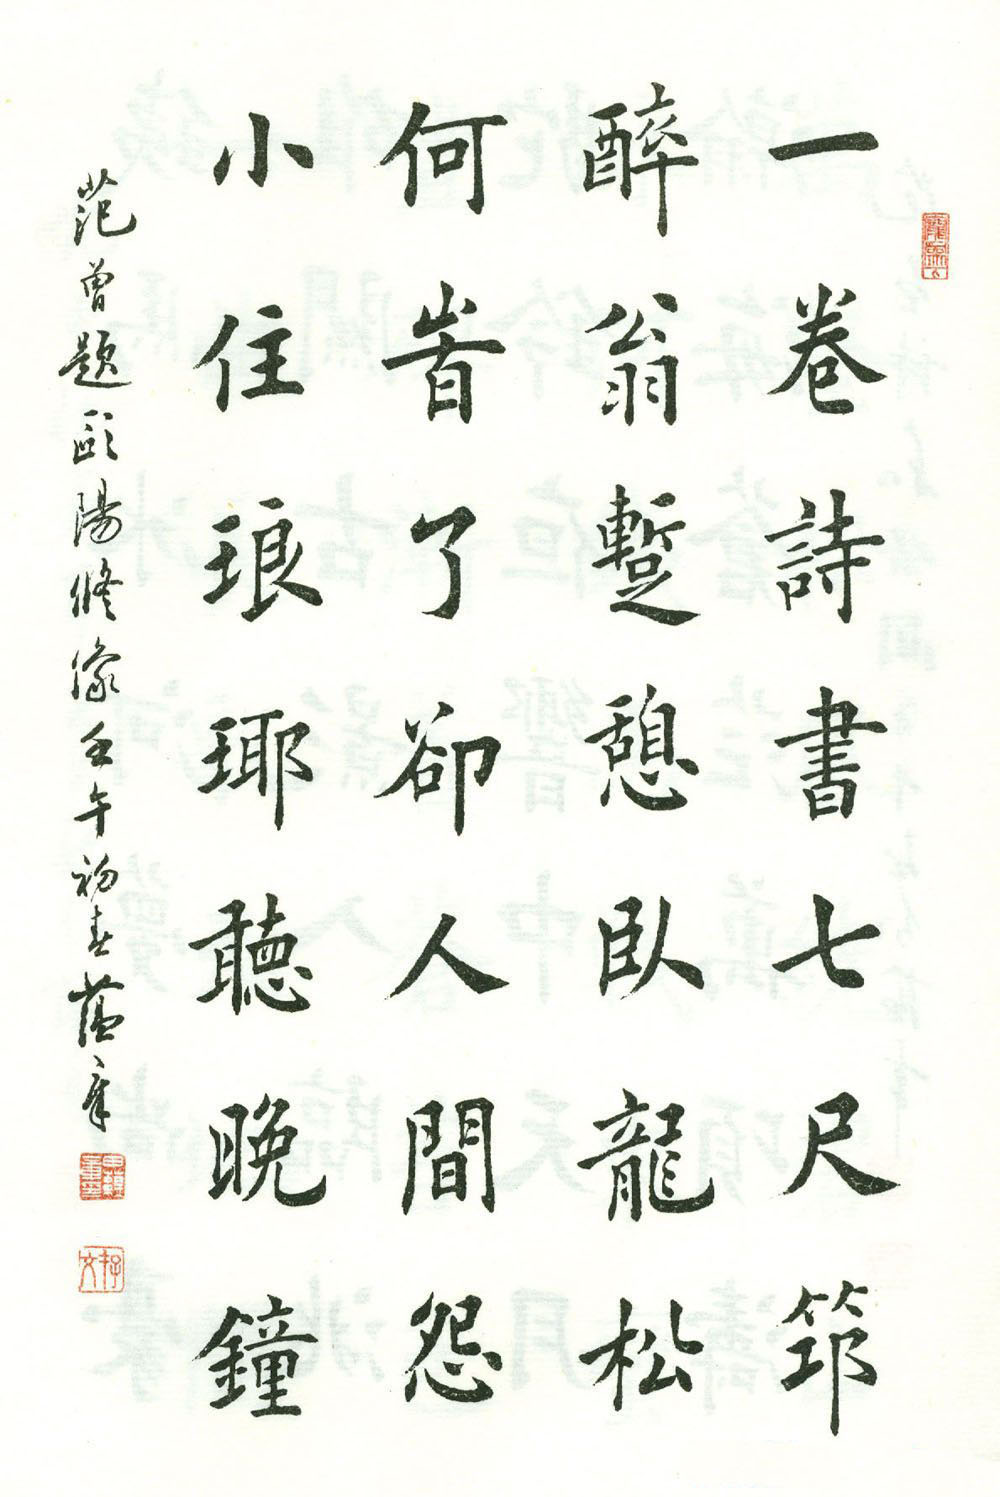 一卷詩書七尺筇
醉翁蹔憩臥龍松
何旹了卻人間怨
小住琅琊聽晚鐘
范曾題歐陽修像壬午初春蕴章